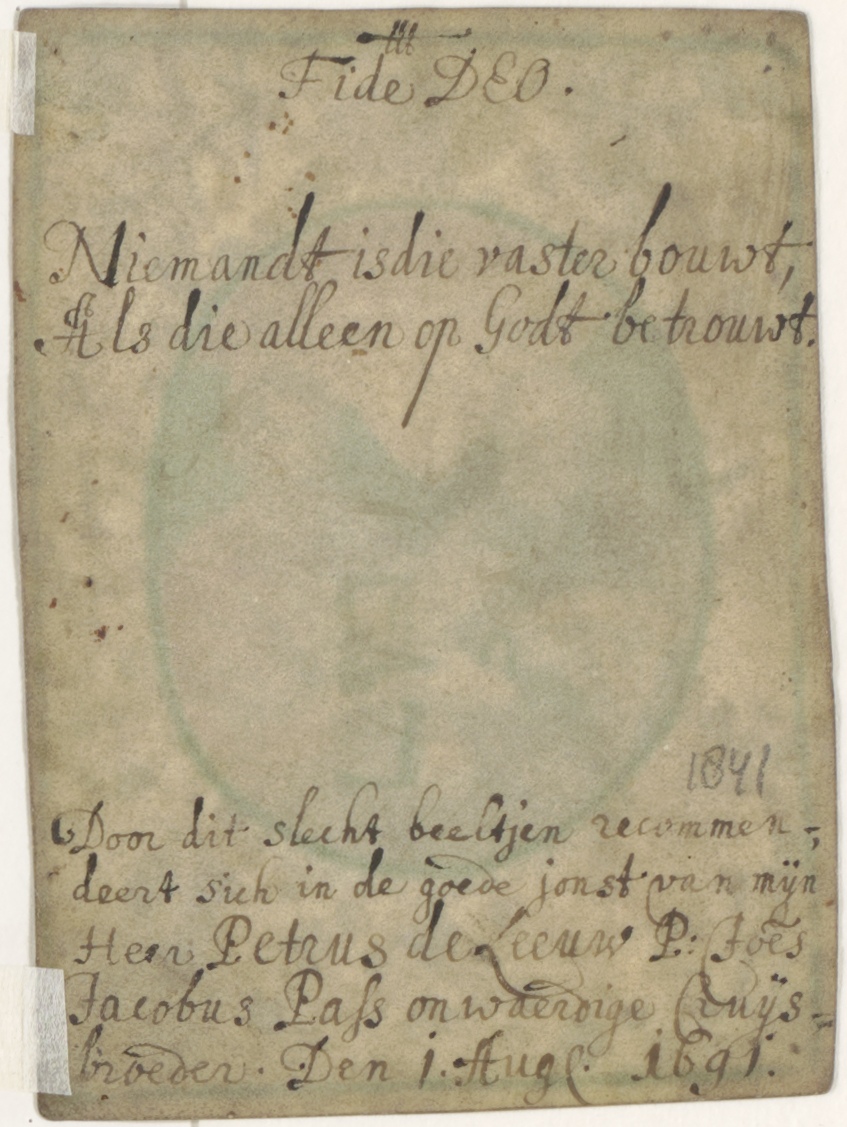 Fide DEO.
Niemandt is die vaster bouwt,
Als die alleen op Godt betrouwt.
1841
Door dit slecht beeltjen recommen-
deert sich in de goede jonst van mÿn
Herr Petrus de Leeuw P: Joēs
Jacobus Pass onwaerdige Cruÿs-
broeder. Den 1. Aug. 1691.